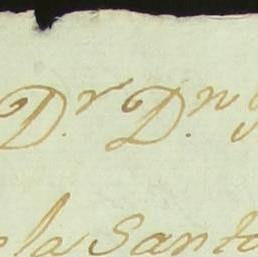 Dr. Dn.
la Santa